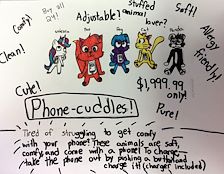 Comfy!
Buy all 24!
Adjustable!
Stuffed animal lover?
Soft!
Allergy friendly!
Clean!
Unicorn
Cat
Cute!
$1,999.99 only!
Pure!
Phone-cuddles!
Tired of struggling to get comfy
with your phone? These animals are soft,
comfy, and come with a phone! To charge,
take the phone out by pushing a button and
charge it! (charger included)